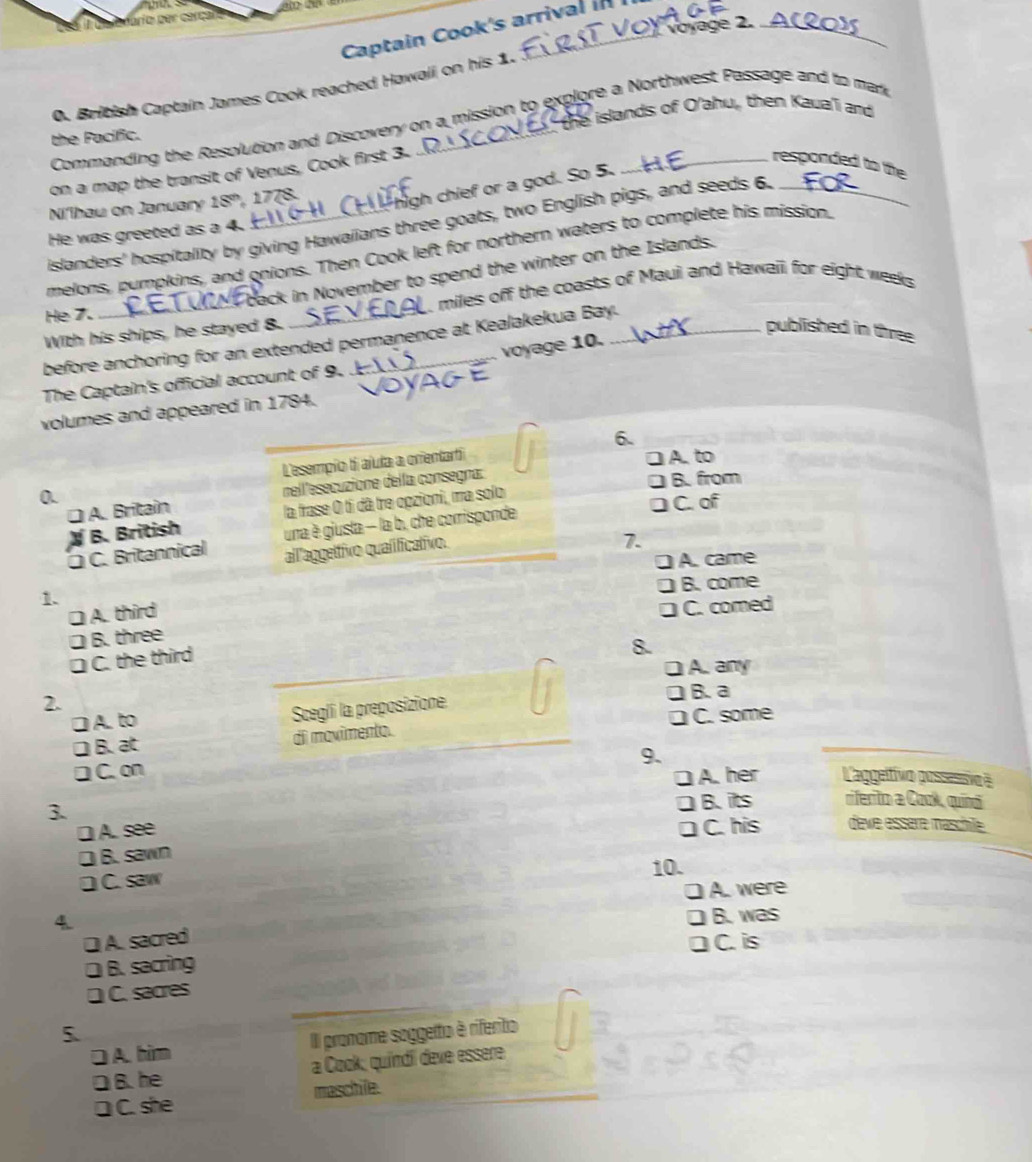 Captain Cook's arrival in
0. British Captain James Cook reached Hawaii on his 1. FIRST VOYAGE voyage 2. ACROSS
the Pacific.
Commanding the Resolution and Discovery on a mission to explore a Northwest Passage and to mark
on a map the transit of Venus, Cook first 3. DISCOVERED the islands of O'ahu, then Kaua'i and
Ni'lhau on January 18th, 1778.
He was greeted as a 4. HIGH CHIEF high chief or a god. So 5. HE responded to the
islanders' hospitality by giving Hawaiians three goats, two English pigs, and seeds 6. FOR
melons, pumpkins, and onions. Then Cook left for northern waters to complete his mission.
He 7. RETURNED back in November to spend the winter on the Islands.
With his ships, he stayed 8. SEVERAL miles off the coasts of Maui and Hawaii for eight weeks
before anchoring for an extended permanence at Kealakekua Bay.
The Captain's official account of 9. HIS VOYAGE voyage 10. WAS published in three
volumes and appeared in 1784.
0.
A. Britain
B. British
C. Britannical
L'esempio ti aiuta a orientarti
nell'esecuzione della consegna:
la frase 0 ti dà tre opzioni, ma solo
una è giusta – la b, che corrisponde
all'aggettivo qualificativo.
1.
A. third
B. three
C. the third
2.
A. to
B. at
C. on
Scegli la preposizione
di movimento.
3.
A. see
B. sawn
C. saw
4.
A. sacred
B. sacring
C. sacres
5.
A. him
B. he
C. she
Il pronome soggetto è riferito
a Cook, quindi deve essere
maschile.
6.
A. to
B. from
C. of
7.
A. came
B. come
C. comed
8.
A. any
B. a
C. some
9.
A. her
B. its
C. his
L'aggettivo possessivo è
riferito a Cook, quindi
deve essere maschile.
10.
A. were
B. was
C. is